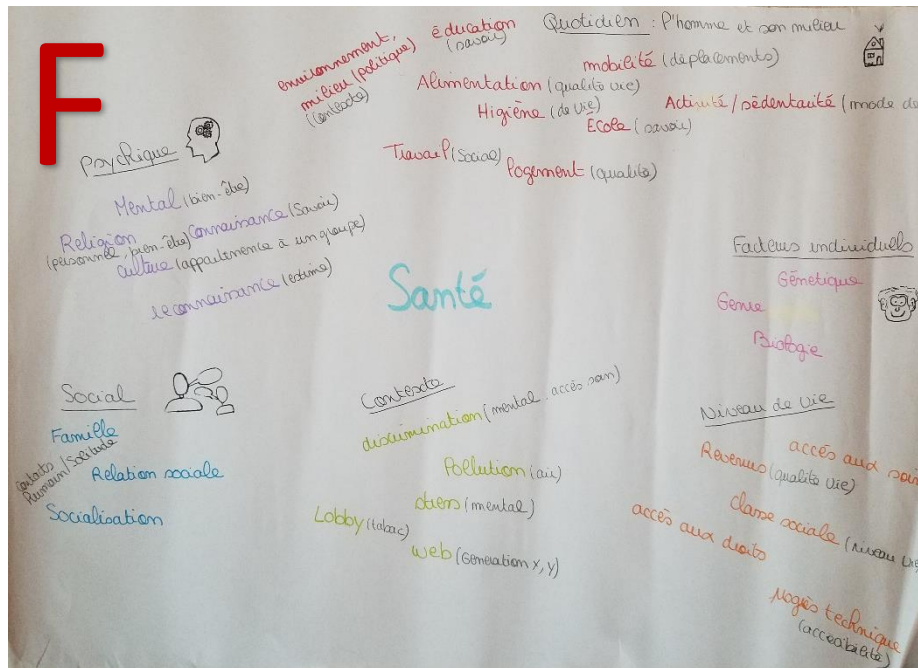 F
Quotidien : l'homme et son milieu
éducation
(savoir)
environnement,
milieu (politique)
(contexte)
mobilité (déplacements)
Alimentation (qualité vie)
Higiène (de vie)
Activité / sédentarité (mode de
École (savoir)
Travail (social)
logement (qualité)
Psychique
Mental (bien-être)
Religion
(personnel, bien-être)
Connaissance (savoir)
culture (appartenence à un groupe)
reconnaissance (estime)
Santé
Facteurs individuels
Génétique
Genre
Biologie
Social
Famille
contacts
Humain/Solitude
Relation sociale
Socialisation
Contexte
discrimination (mental, accès soin)
Pollution (air)
stress (mental)
Lobby (tabac)
web (Generation x, y)
Niveau de vie
Revenus (qualité vie)
accès aux soin
classe sociale (niveau vie
accès aux droits
progrès technique
(accessibilité)